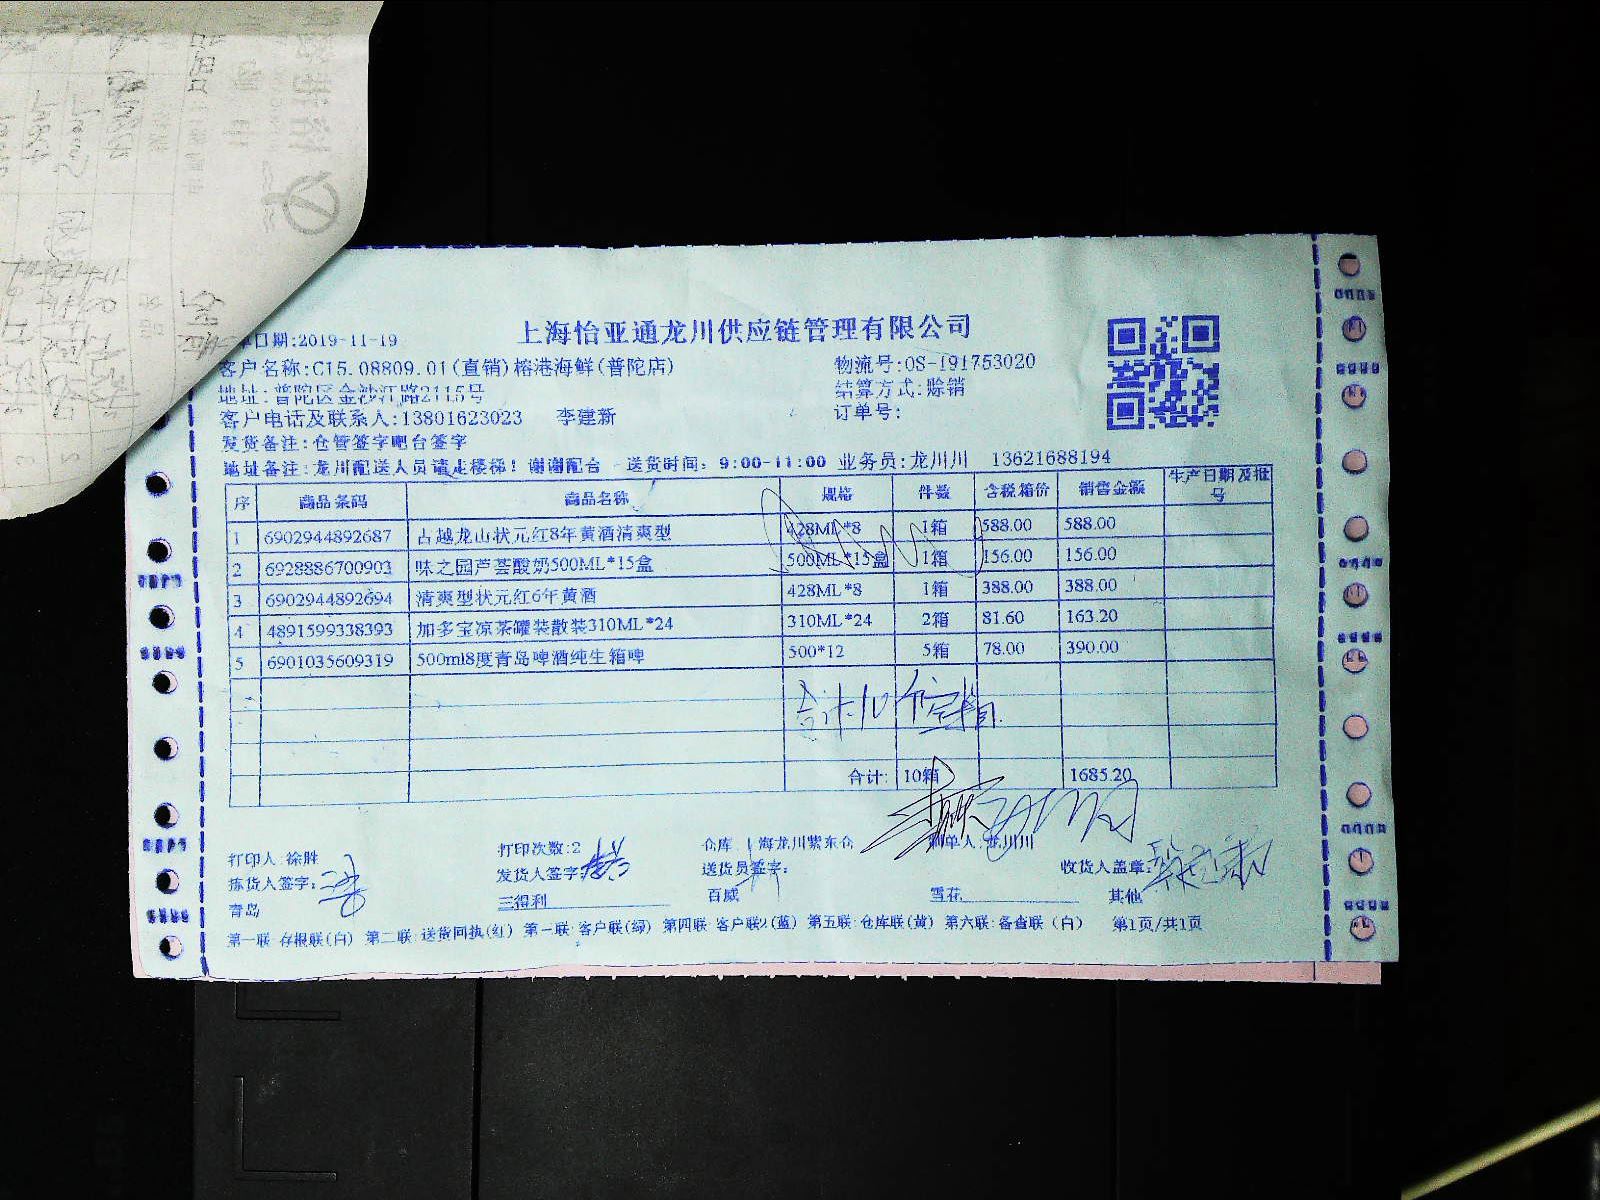 单日期:2019-11-19
上海怡亚通龙川供应链管理有限公司
客户名称:C15.08809.01(直销)榕港海鲜(普陀店)
物流号:OS-191753020
地址:普陀区金沙江路2115号
结算方式:赊销
客户电话及联系人:13801623023 李建新
订单号:
发货备注:仓管签字吧台签字
地址备注:龙川配送人员请走楼梯!谢谢配合 送货时间:9:00-11:00 业务员:龙川川 13621688194
序 商品条码 商品名称 规格 件数 含税箱价 销售金额 生产日期及批号
1 6902944892687 古越龙山状元红8年黄酒清爽型 428ML*8 1箱 588.00 588.00
2 6928886700903 味之园芦荟酸奶500ML*15盒 500ML*15盒 1箱 156.00 156.00
3 6902944892694 清爽型状元红6年黄酒 428ML*8 1箱 388.00 388.00
4 4891599338393 加多宝凉茶罐装散装310ML*24 310ML*24 2箱 81.60 163.20
5 6901035609319 500ml8度青岛啤酒纯生箱啤 500*12 5箱 78.00 390.00
合计:10个空箱.
合计: 10箱 1685.20
打印人:徐胜 打印次数:2 仓库:上海龙川紫东仓 制单人:龙川川
拣货人签字: 发货人签字: 送货员签字: 收货人盖章:
青岛 三得利 百威 雪花 其他
第一联:存根联(白) 第二联:送货回执(红) 第一联:客户联(绿) 第四联:客户联2(蓝) 第五联:仓库联(黄) 第六联:备查联(白) 第1页/共1页